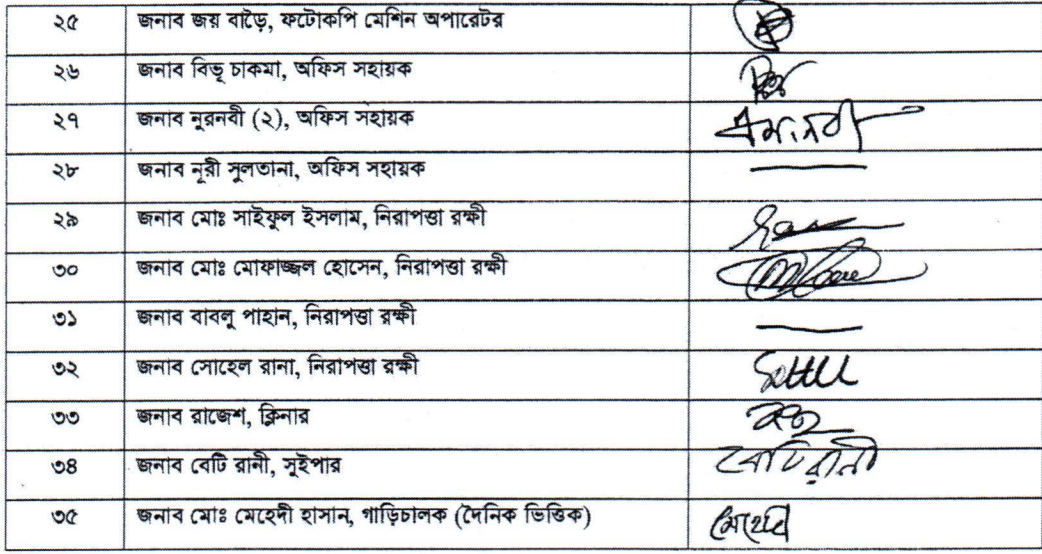 ২৫ জনাব জয় বাড়ৈ, ফটোকপি মেশিন অপারেটর
২৬ জনাব বিভূ চাকমা, অফিস সহায়ক
২৭ জনাব নুরনবী (২), অফিস সহায়ক
২৮ জনাব নূরী সুলতানা, অফিস সহায়ক
২৯ জনাব মোঃ সাইফুল ইসলাম, নিরাপত্তা রক্ষী
৩০ জনাব মোঃ মোফাজ্জল হোসেন, নিরাপত্তা রক্ষী
৩১ জনাব বাবলু পাহান, নিরাপত্তা রক্ষী
৩২ জনাব সোহেল রানা, নিরাপত্তা রক্ষী
৩৩ জনাব রাজেশ, ক্লিনার
৩৪ জনাব বেটি রানী, সুইপার বেটি রানী
৩৫ জনাব মোঃ মেহেদী হাসান, গাড়িচালক (দৈনিক ভিত্তিক) মেহেদি